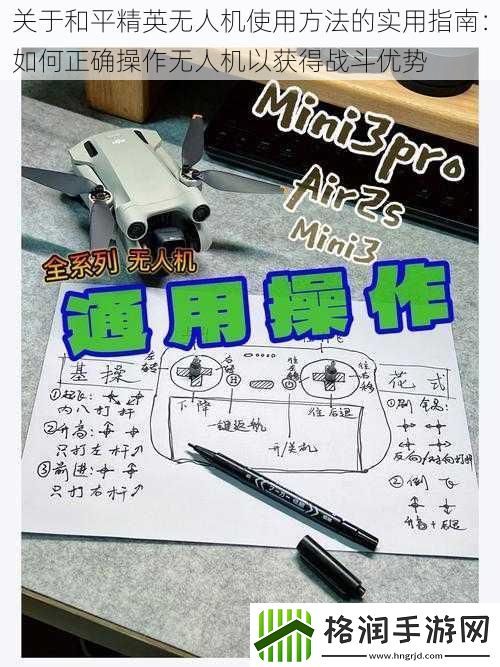 关于和平精英无人机使用方法的实用指南：
如何正确操作无人机以获得战斗优势
Mini3pro
Air2s
Mini3
全系列 无人机
通用操作
基操
①起飞：
内八打杆
②升高：
只打左杆
③前进：
只打右杆
左转
右转
往左移
往右移
下降
往后退
一键返航
开/关机
花式
①刷锅：
反向/对向打杆
②倒飞
升高+后退
格润手游网
www.hngrjd.com